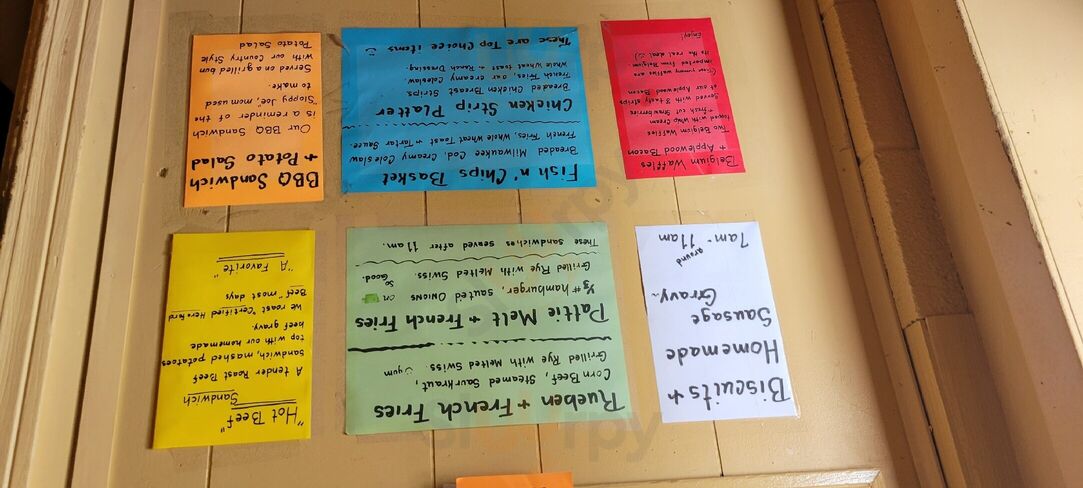 Biscuits +
Homemade
Sausage
Gravy~
around
7am - 11am
Rueben + French Fries
Corn Beef, Steamed Saurkraut,
Grilled Rye with Melted Swiss. yum
Pattie Melt + French Fries
1/3 # hamburger, sauted Onions on
Grilled Rye with Melted Swiss. So Good.
These Sandwiches served after 11am.
"Hot Beef"
Sandwich
A tender Roast Beef
Sandwich, mashed potatoes
top with our homemade
beef gravy.
We roast "Certified Hereford
Beef" most days
"A Favorite"
Belgium Waffles
+ Applewood Bacon
Two Belgium Waffles
topped with Whip Cream
+ fresh Strawberries
Served with 3 tasty strips
of our Applewood Bacon
(Our yummy waffles are
imported from Belgium.
its the real deal :)
Enjoy!
Fish n' Chips Basket
Breaded Milwaukee Cod, Creamy Coleslaw
French Fries, Whole Wheat Toast + Tartar Sauce.
Chicken Strip Platter
Breaded Chicken Breast Strips
French Fries, our creamy Coleslaw.
Whole Wheat toast + Ranch Dressing.
These are Top Choice items
BBQ Sandwich
+ Potato Salad
Our BBQ Sandwich
is a reminder of the
"Sloppy Joe", mom used
to make.
Served on a grilled bun
with our Country Style
Potato Salad
sluurpy